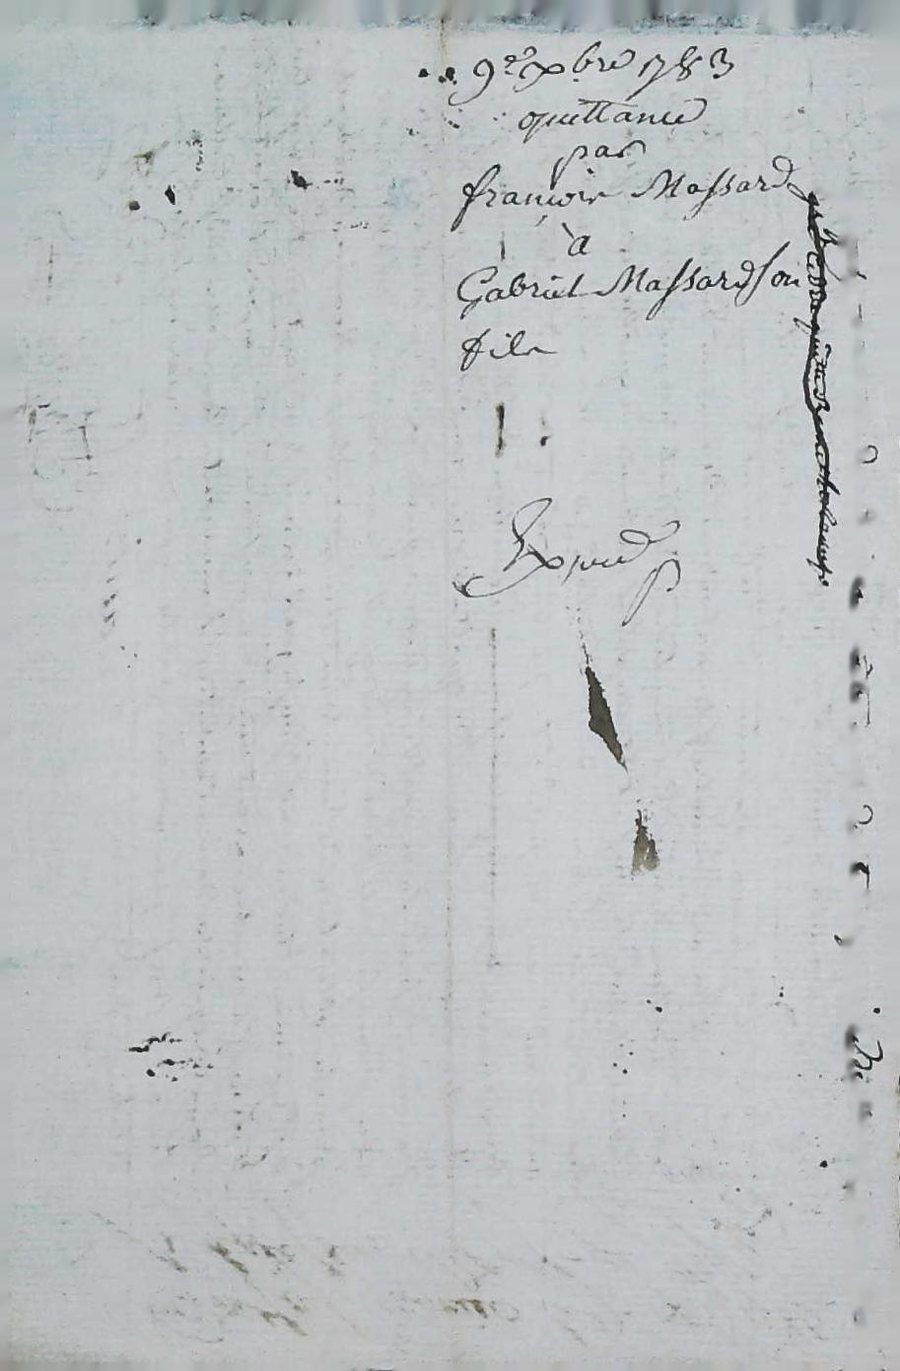 9e xbre 1783
quittance
par
francois Massard
à
Gabriel Massard son
fils
Expedié